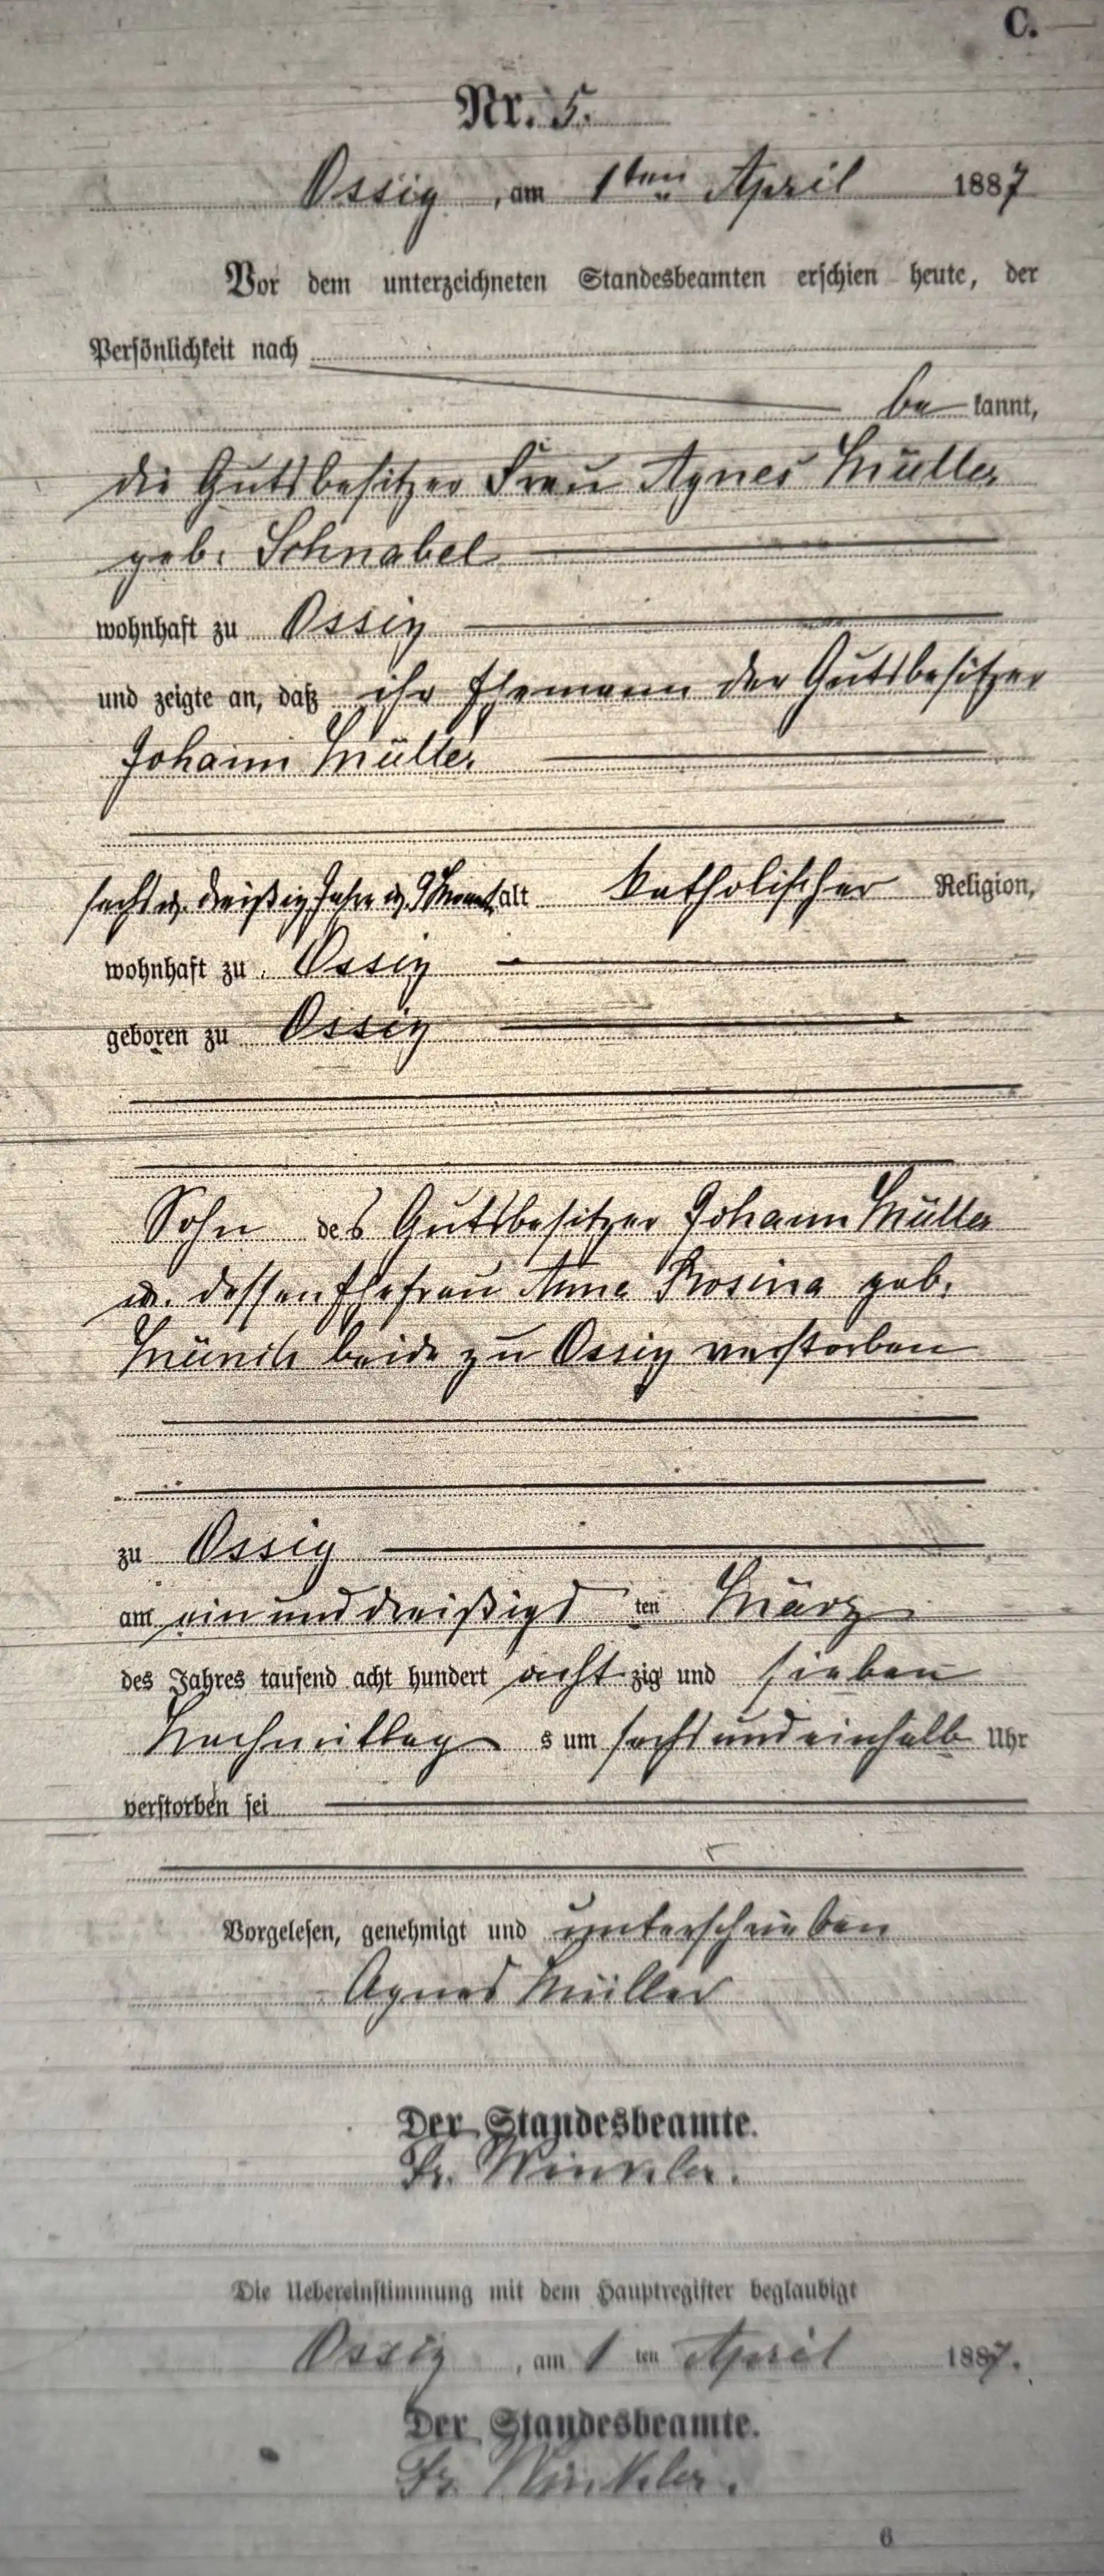 C.
Nr. 5.
Ossig, am 1ten April 1887
Vor dem unterzeichneten Standesbeamten erschien heute, der
Persönlichkeit nach
be kannt,
die Gutsbesitzer Frau Agnes Müller
geb. Schnabel
wohnhaft zu Ossig
und zeigte an, daß ihr Ehemann der Gutsbesitzer
Johann Müller
sechs u. dreißig Jahre u. 9 Monat alt katholischer Religion,
wohnhaft zu Ossig
geboren zu Ossig
Sohn des Gutsbesitzer Johann Müller
u. dessen Ehefrau Anna Rosina geb.
beide zu Ossig verstorben
zu Ossig
am ein und dreißigs ten März
des Jahres tausend acht hundert acht zig und sieben
Nachmittag s um sechs und einhalb Uhr
verstorben sei
Vorgelesen, genehmigt und unterschrieben
Agnes Müller
Der Standesbeamte.
Fr. Winkler.
Die Uebereinstimmung mit dem Hauptregister beglaubigt
Ossig, am 1 ten April 1887.
Der Standesbeamte.
Fr. Winkler.
6